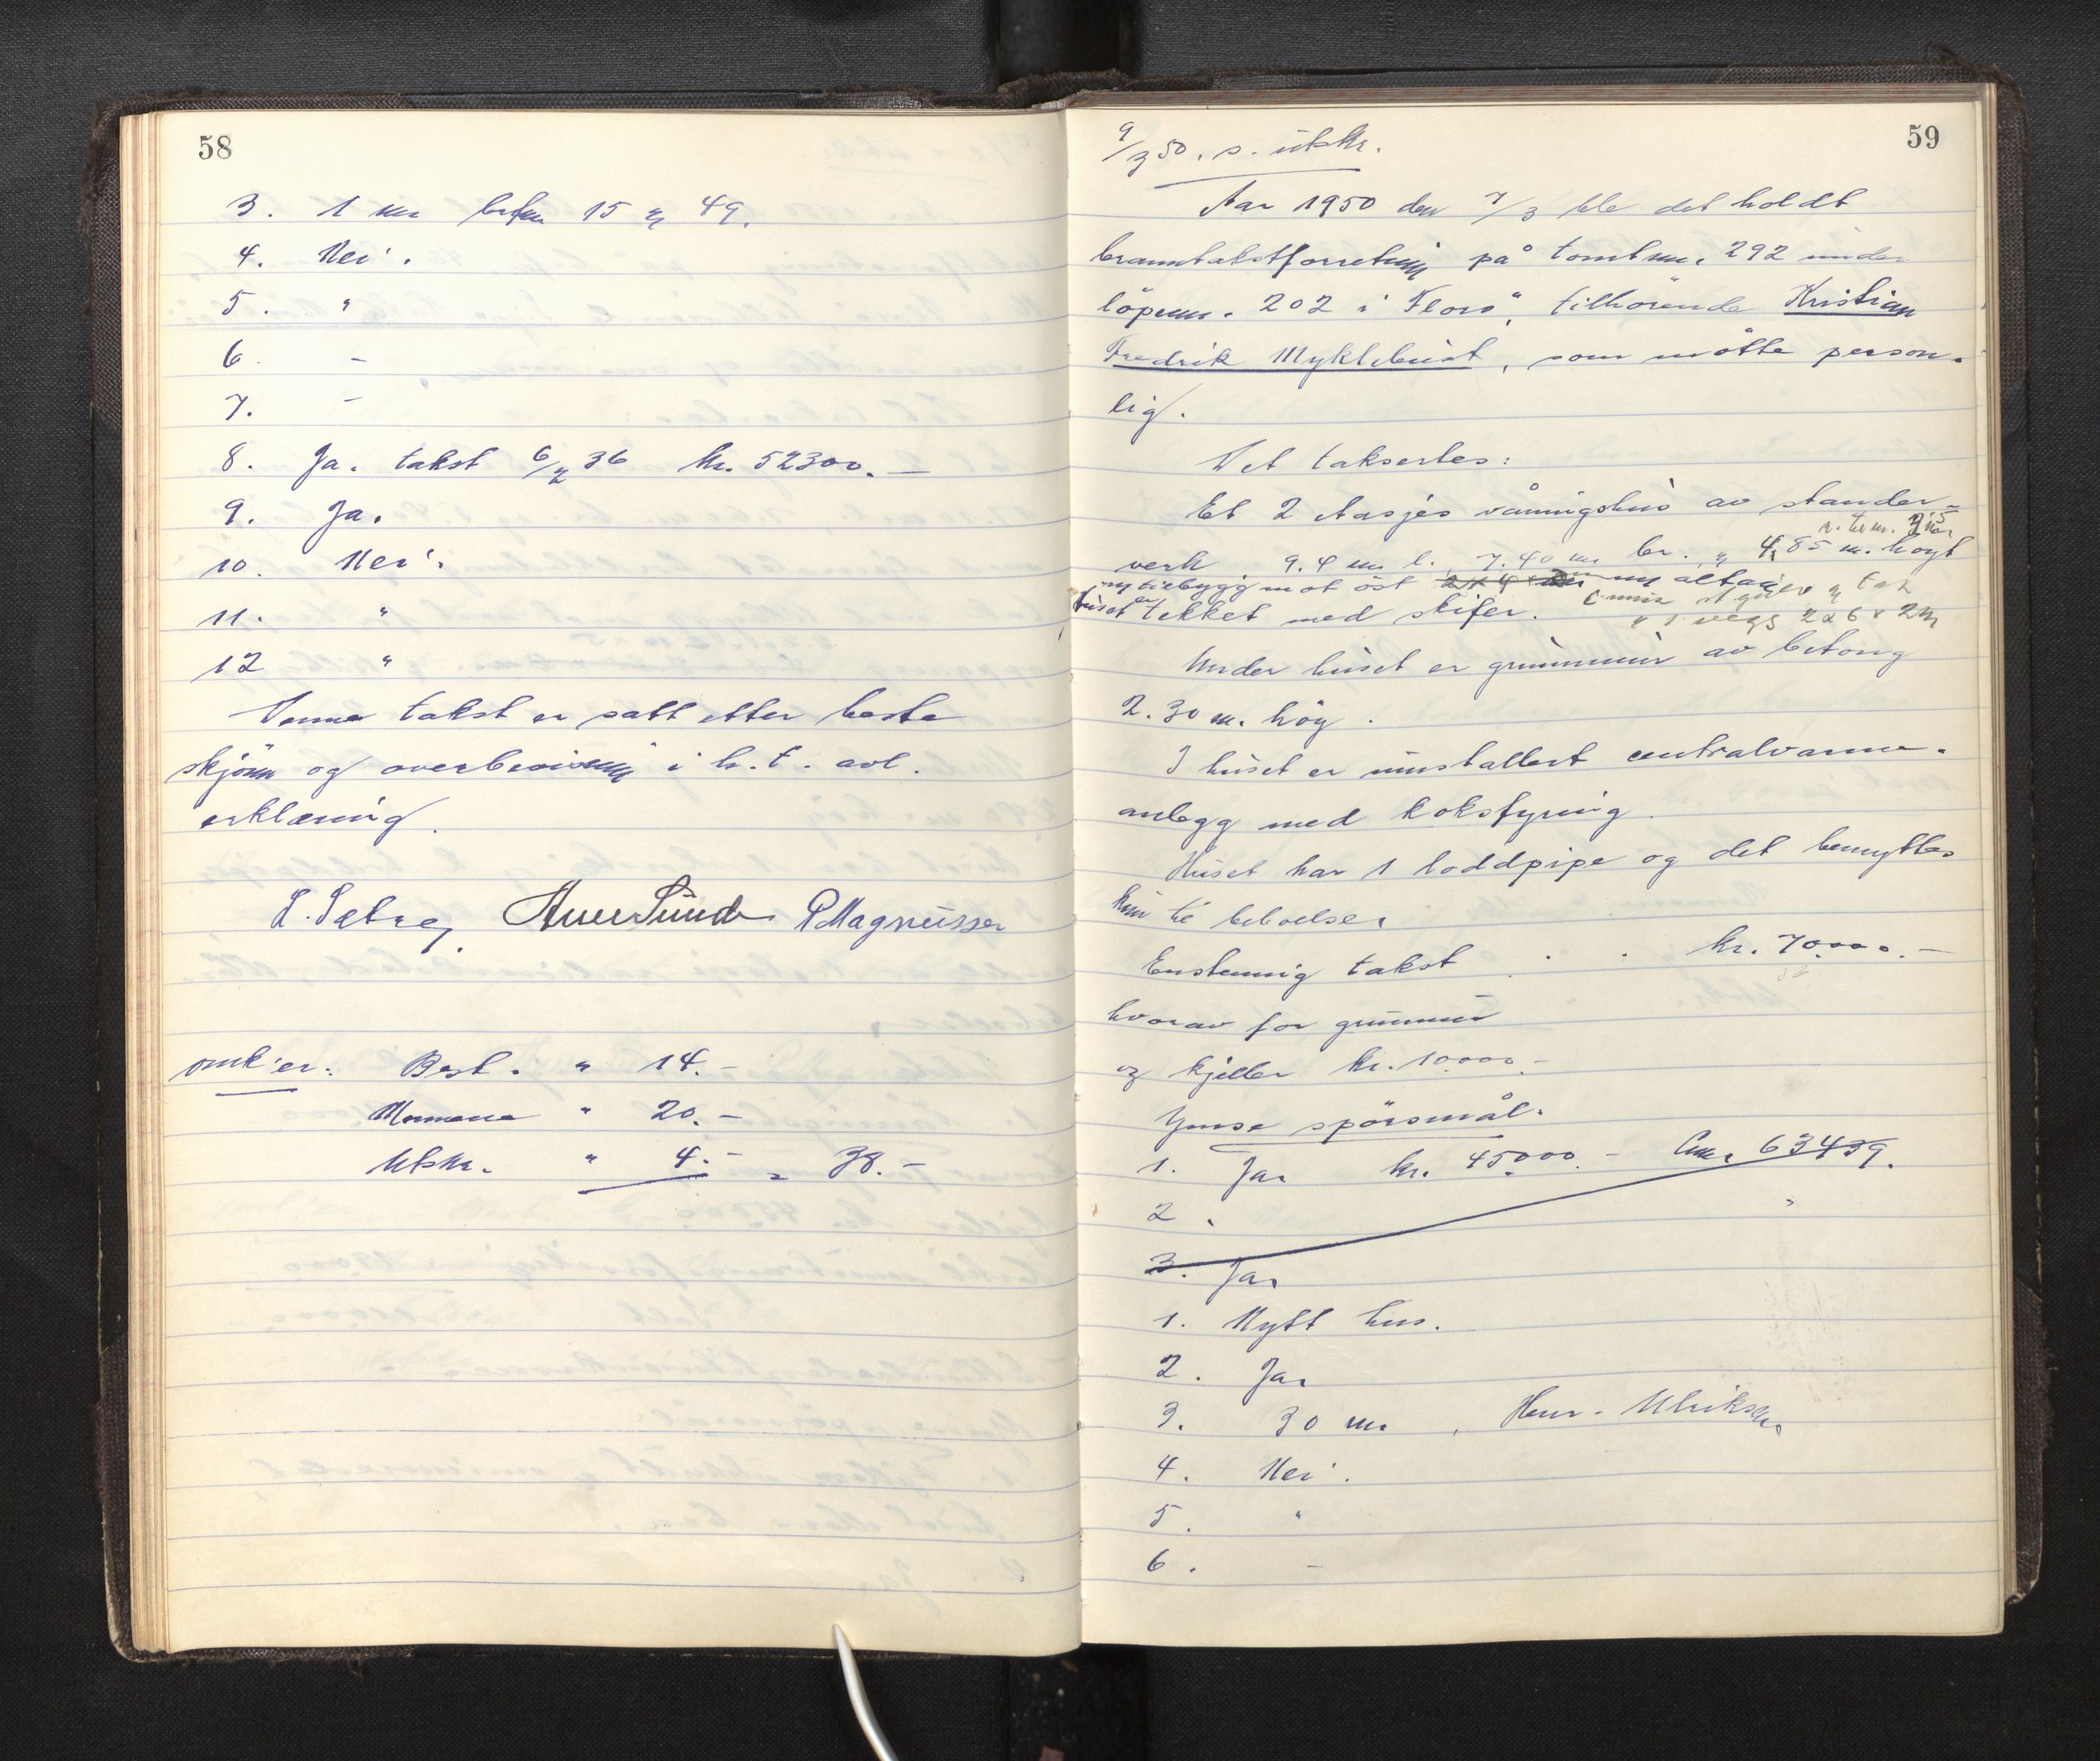 58
3. 1 m brfm 15 og 49.
4. Nei.
5. "
6. -
7. -
8. Ja. takst 6/2 36 kr. 52300.-
9. Ja.
10. Nei.
11. "
12 "
Denne takst er satt etter beste
skjønn og overbevisning i h.t. avl.
erklæring.
L. Sætre, Sunde P Magnussen
omk'er: Best. " 14.-
Mennene " 20.-
Utskr. " 4.- = 38.-
59
9/3 50. s. utskr.
Aar 1950 den 7/3 ble det holdt
branntakstforretning på tomtnr. 292 under
löpenr. 202 i Florö, tilhørende Kristian
Fredrik Myklebust, som møtte person-
lig.
Det taksertes:
Et 2 etasjes våningshus av stender-
verk 9.4 m l., 7.40 m br. og 4,85 m. høyt
ny tilbygg mot öst 2 x 4 ny altan
huset er tekket med skifer. 2x6x2m
Under huset er grunnmur av betong
2.30 m. høy.
I huset er innstallert centralvarme-
anlegg med koksfyring.
Huset har 1 loddpipe og det benyttes
kun til beboelse.
Enstemmig takst . . kr. 70000.-
hvorav for grunnmur
og kjeller kr. 10000.-
Ymse spörsmål.
1. Ja. kr. 45000.- 63439.
2.
3. Ja.
1. Nytt hus.
2. Ja.
3. 30 m. , Henr. Ulriksen.
4. Nei.
5. "
6. -